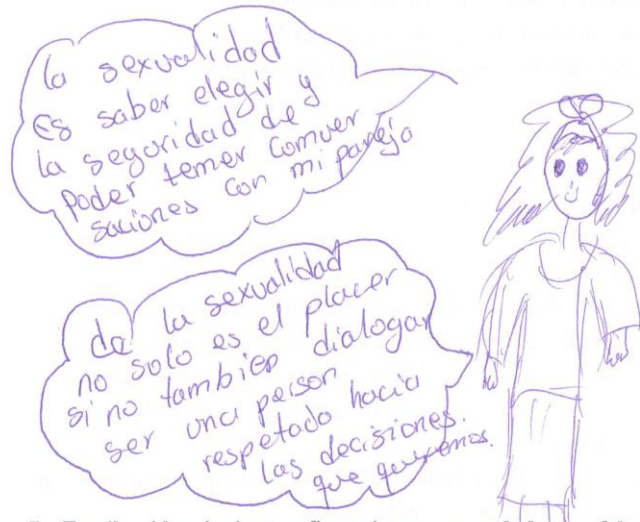 la sexualidad
es saber elegir y
la seguridad de
poder temer comver
saciones con mi pareja
de la sexualidad
no solo es el placer
si no tambien dialogar
ser una person
respetado hacia
las decisiones.
que queremos.